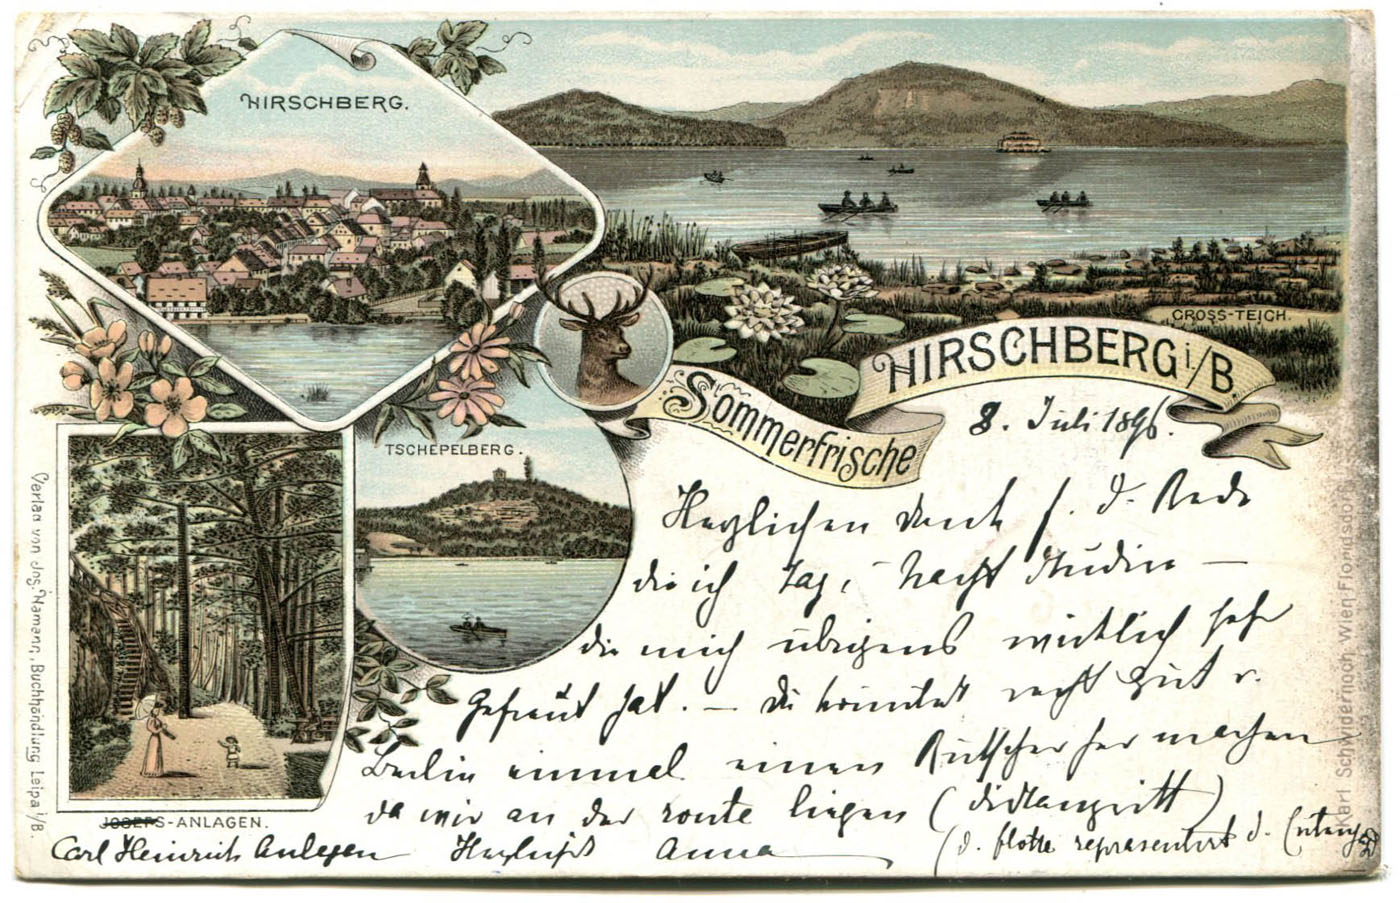 HIRSCHBERG.
GROSS-TEICH.
HIRSCHBERG i/B
Sommerfrische
TSCHEPELBERG.
8. Juli 1896.
Herzlichen Dank f. d. Rede
die ich Tag, Nacht Studire —
die mich übrigens wirklich sehr
gefreut hat. — Du könntest recht gut v.
Berlin einmal einen Rutscher her machen
da wir an der route liegen (Distanzritt)
(d. flotte representirt d.
JOSEFS-ANLAGEN.
Carl Heinrich Anlegen Herzlichst Anna
Verlag von Jos. Hamann, Buchhandlung Leipa i/B.
Karl Schwidernoch Wien Floridsdorf